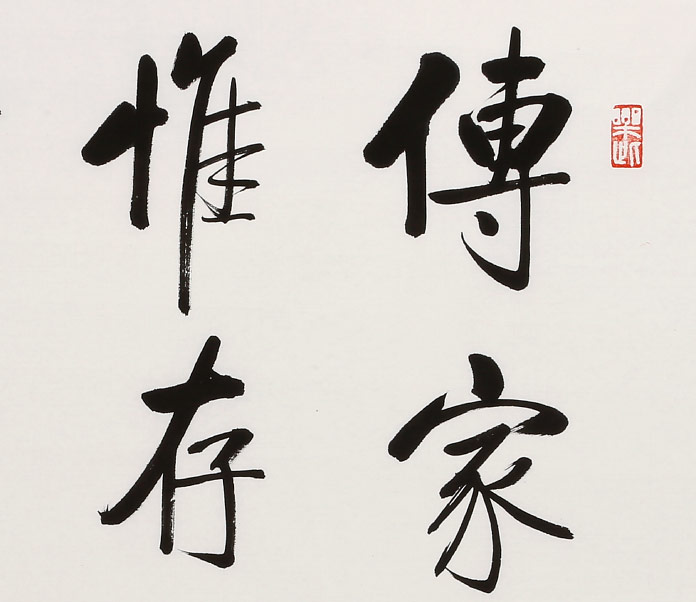 傳家
惟存